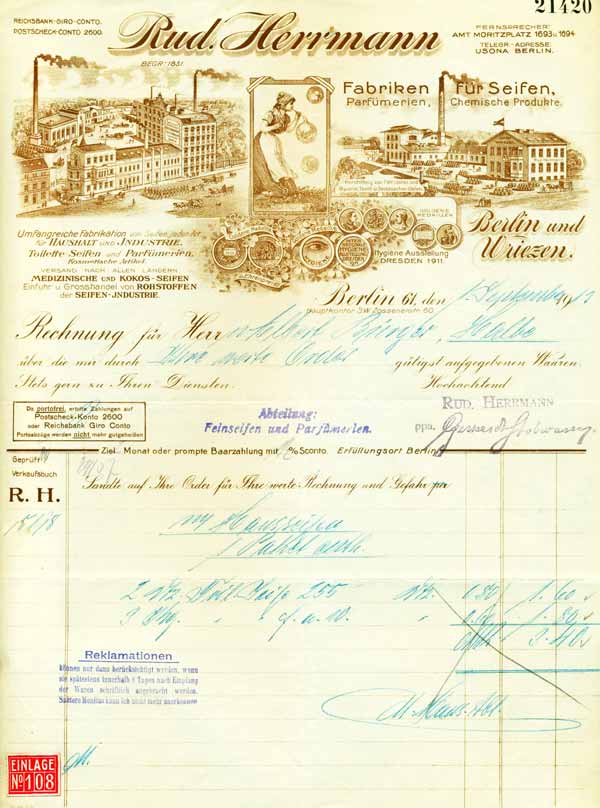 21420
REICHSBANK-GIRO-CONTO.
POSTSCHECK-CONTO 2600.
Rud. Herrmann
FERNSPRECHER:
AMT MORITZPLATZ 1693 u. 1694
TELEGR.-ADRESSE:
USONA BERLIN.
BEGR. 1851.
Fabriken für Seifen,
Parfümerien, Chemische Produkte.
GOLDENE
MEDAILLEN
Umfangreiche Fabrikation von Seifen jeder Art
für HAUSHALT und JNDUSTRIE.
Toilette-Seifen und Parfümerien.
Kosmetische Artikel.
VERSAND NACH ALLEN LÄNDERN
MEDIZINISCHE und KOKOS-SEIFEN
Einfuhr u Grosshandel von ROHSTOFFEN
der SEIFEN-JNDUSTRIE.
HYGIENE
Hygiene Ausstellung
DRESDEN 1911.
Berlin und
Wriezen.
Berlin 61, den September 1913
Hauptkontor: SW. Zossenerstr. 60.
Rechnung für Herrn Albert Halbe
über die mir durch Ihre werte Order gütigst aufgegebenen Waaren.
Stets gern zu Ihren Diensten. Hochachtend
RUD. HERRMANN
ppa.
Da portofrei, erbitte Zahlungen auf
Postscheck-Konto 2600
oder Reichsbank Giro Conto
Portoabzüge werden nicht mehr gutgeheißen
Abteilung:
Feinseifen und Parfümerien.
Ziel Monat oder prompte Baarzahlung mit % Sconto. Erfüllungsort Berlin
Geprüft
Verkaufsbuch
R. H.
Sandte auf Ihre Order für Ihre werte Rechnung und Gefahr per
Hausseifen
1 Paket enth.
2 255 0.80 1.60
3 1.80
3.40
Reklamationen
können nur dann berücksichtigt werden, wenn
sie spätestens innerhalb 8 Tagen nach Empfang
der Waren schriftlich angebracht werden.
Spätere Monitas kann ich nicht mehr anerkennen
EINLAGE
No 108